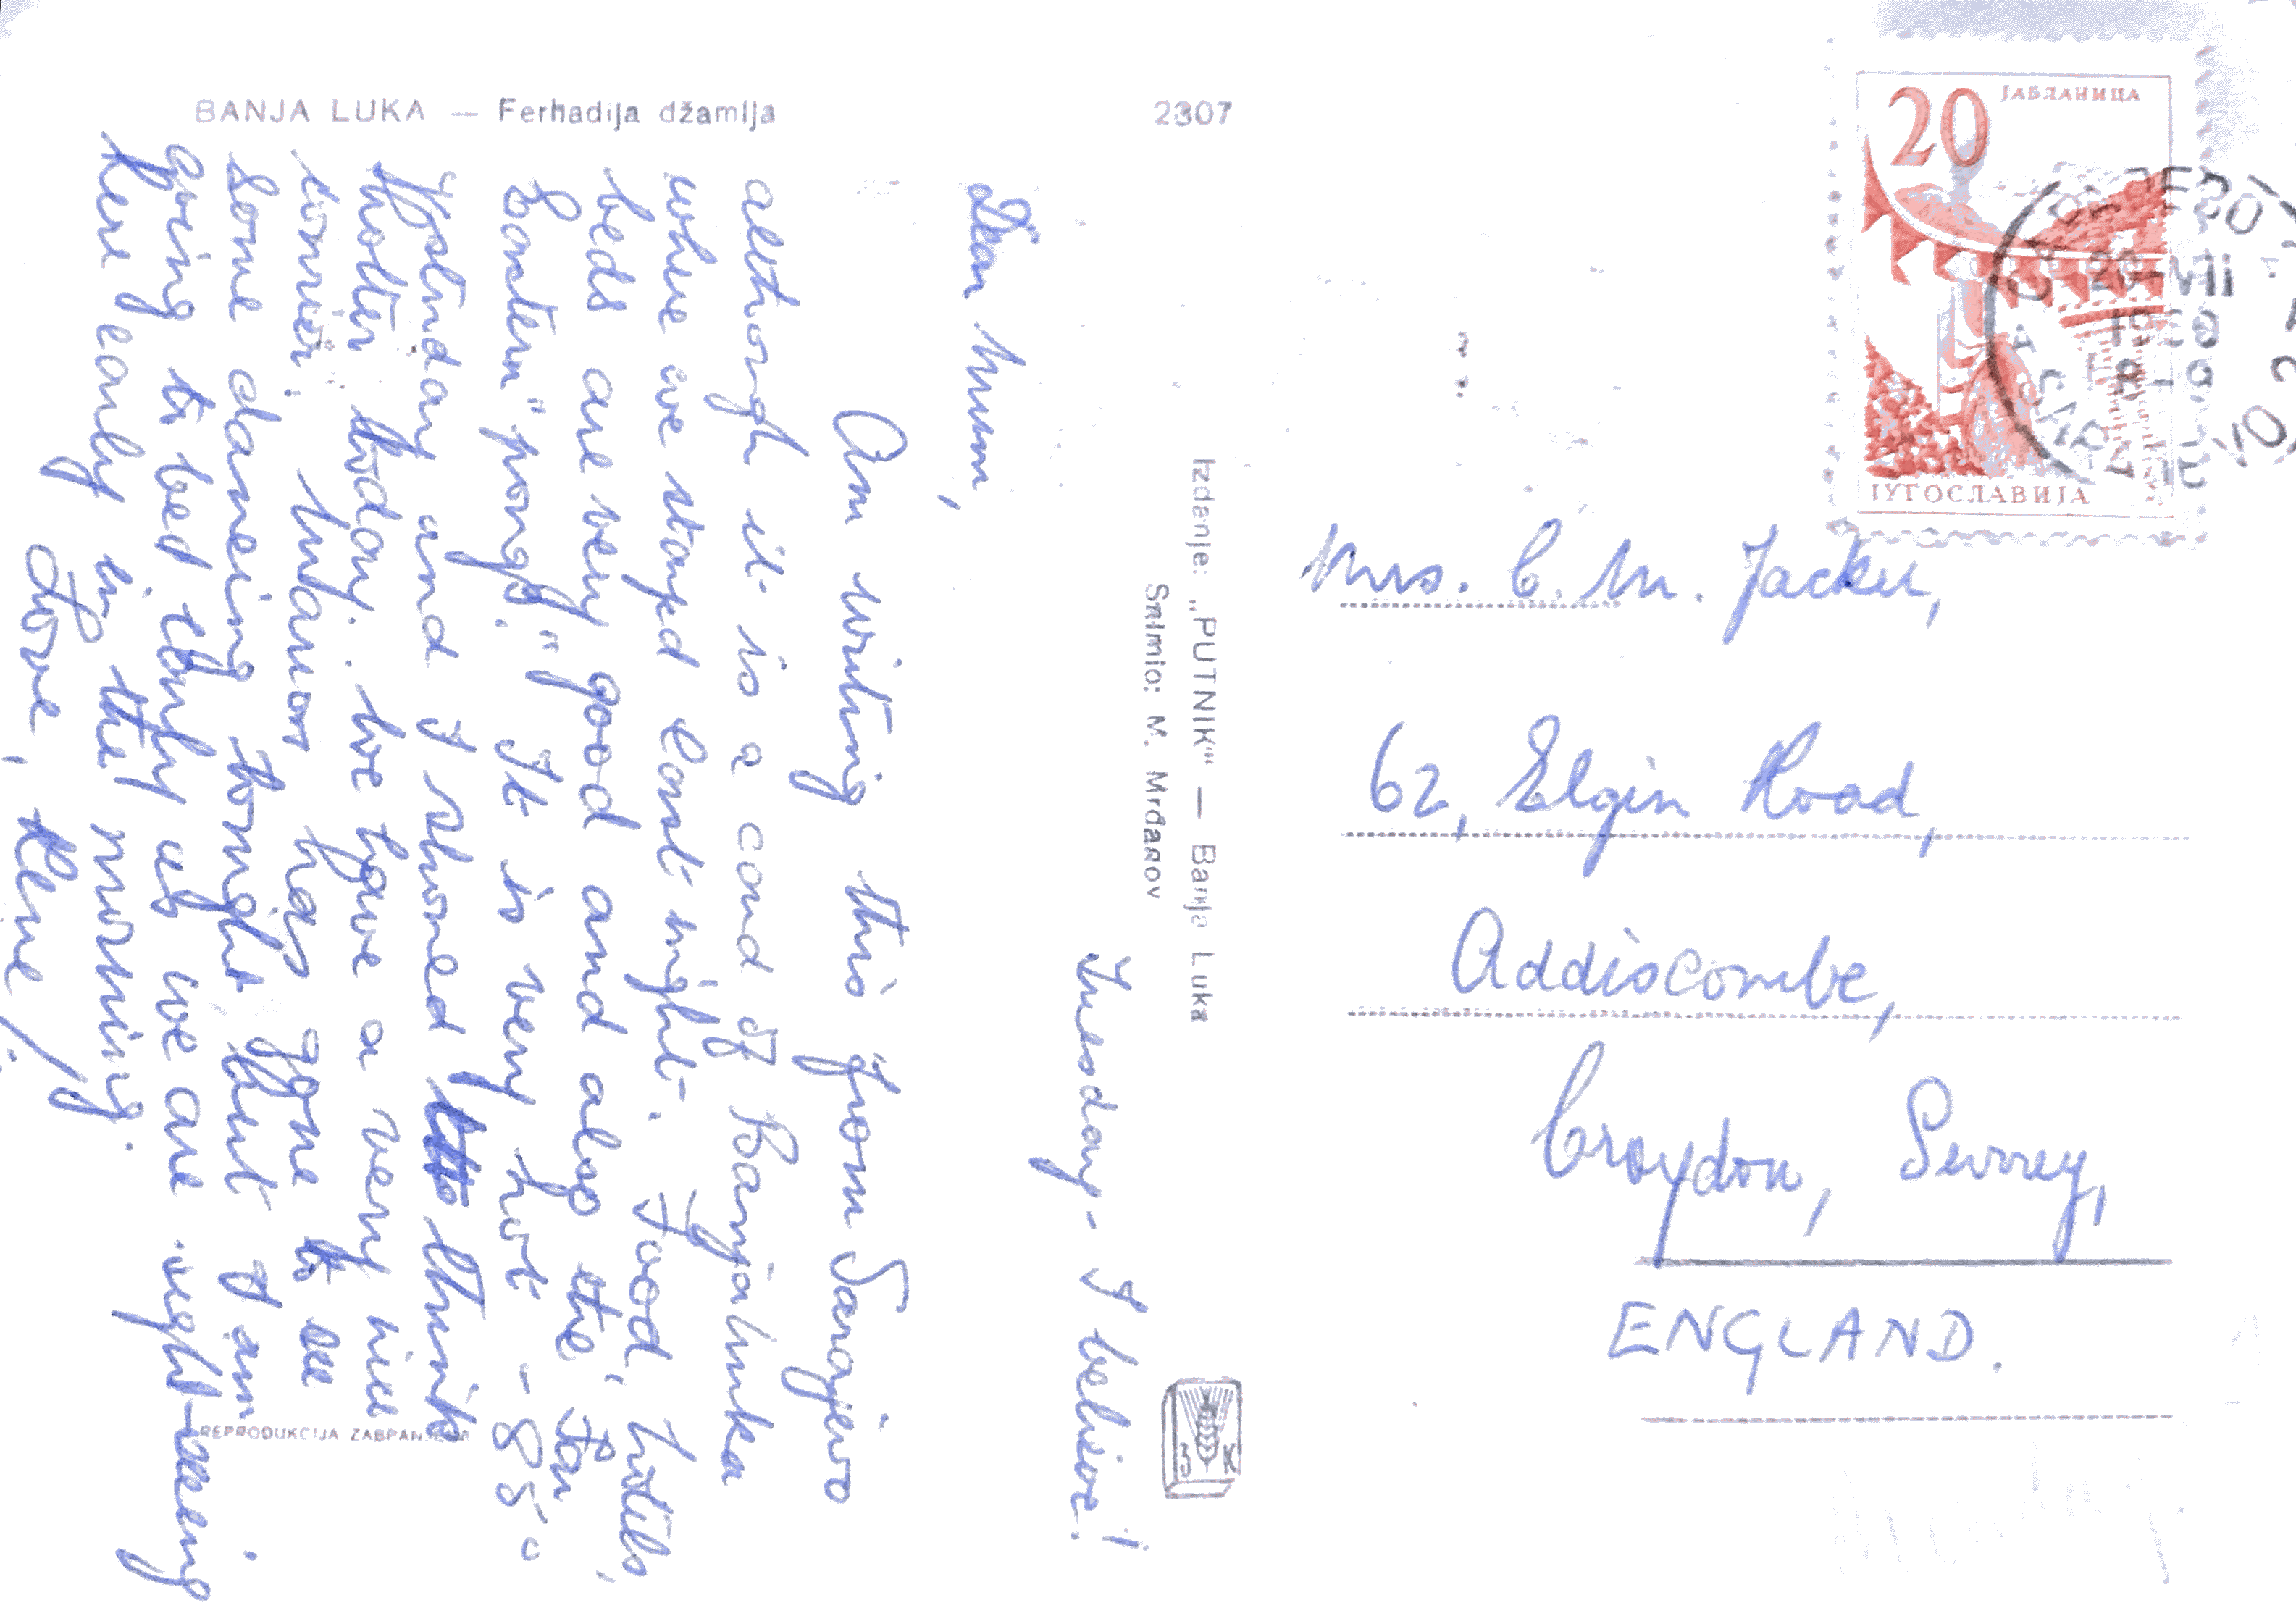 BANJA LUKA — Ferhadija džamija
2307
Tuesday - I believe!
Dear Mum,
Am writing this from Sarajevo
although it is a card of Banjaluka
where we stayed last night. Food, hotels,
beds are very good and also the "Far
Eastern" pongs!" It is very hot - 85°
yesterday and I should think
hotter today. We have a very nice
courier. has gone to see
some dancing tonight but I am
going to bed early as we are sight-seeing
here early in the morning.
Love,
Izdanje: „PUTNIK" — Banja Luka
Snimio: M. Mrđanov
REPRODUKCIJA ZABRANJENA
Z K
20
ЈАБЛАНИЦА
ЈУГОСЛАВИЈА
Mrs. C. M. Jacker,
62, Elgin Road,
Addiscombe,
Croydon, Surrey,
ENGLAND.